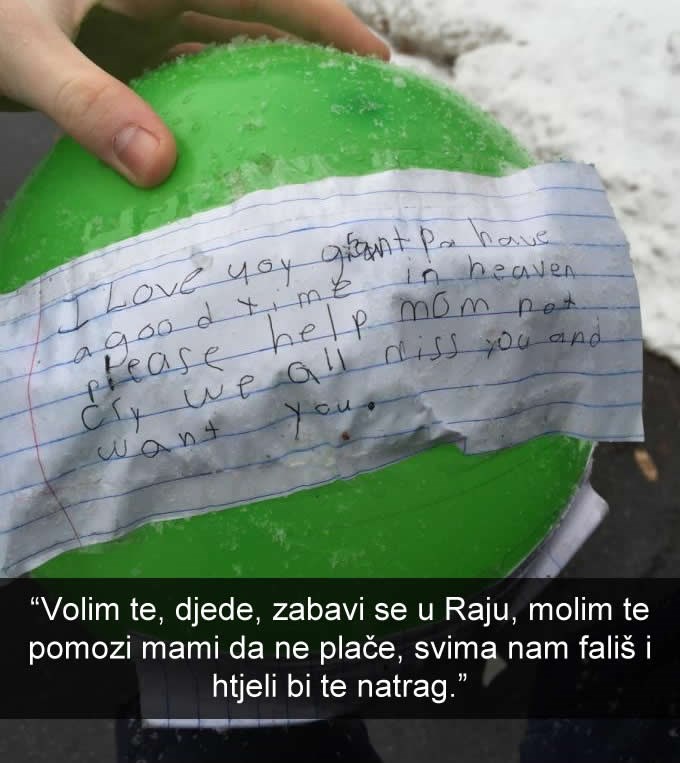 I Love yoy grantPa have
a good time in heaven
please help mom not
Cry we all miss you and
want you.
“Volim te, djede, zabavi se u Raju, molim te
pomozi mami da ne plače, svima nam fališ i
htjeli bi te natrag.”